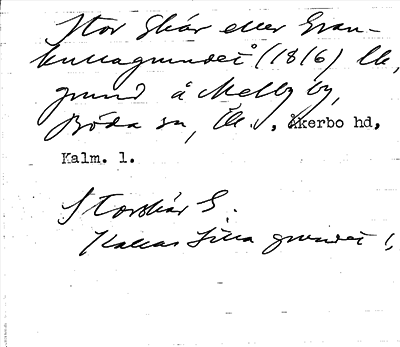 Stor Skär eller Gran-
kullagrundet (1816) lk,
grund å Mellby by,
Böda sn, Öl., Åkerbo hd,
Kalm. l.
Storskär G.
Kallas Lilla grundet!,